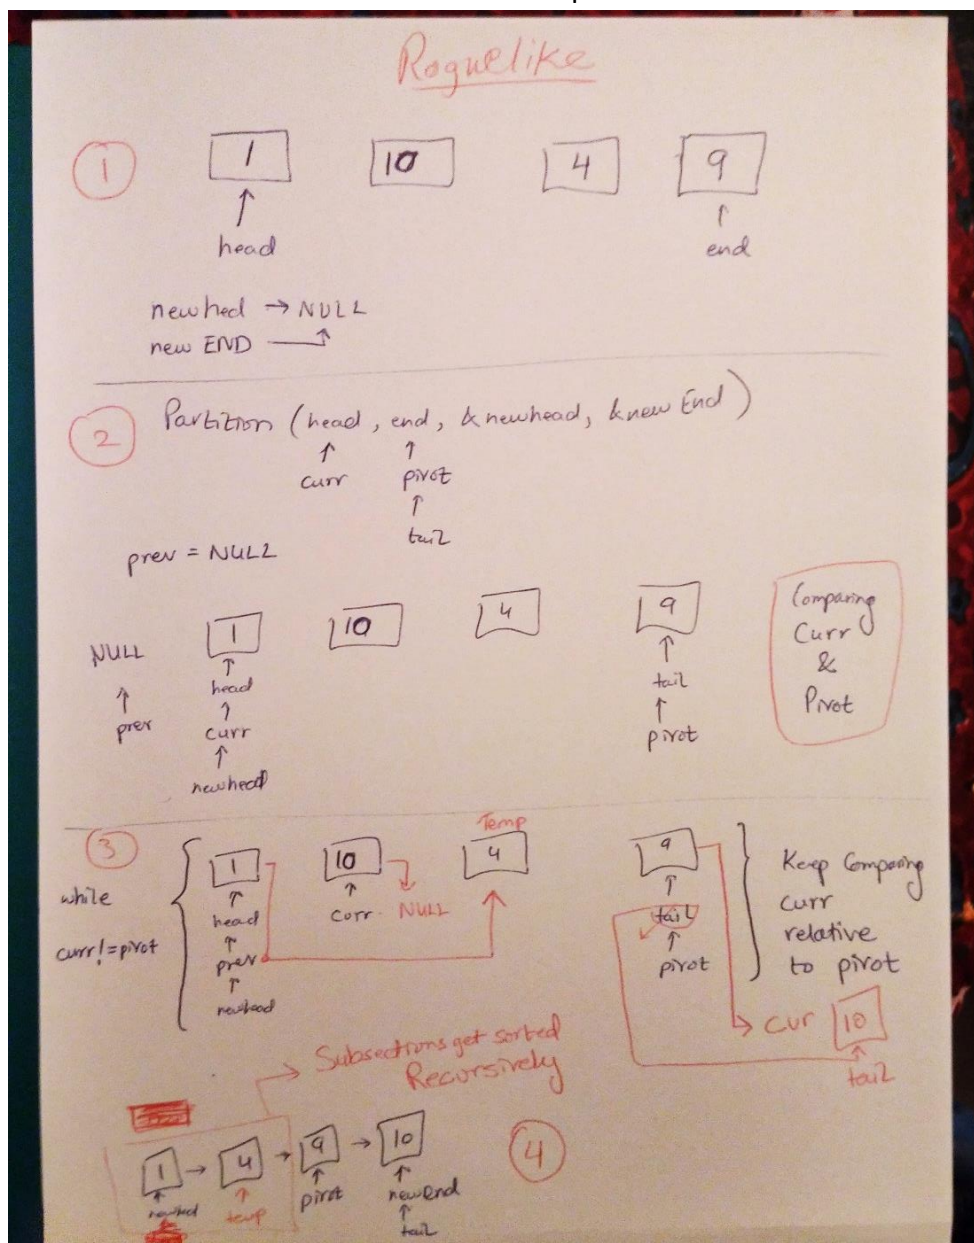 Roguelike
1
1 10 4 9
head end
newhed → NULL
new END
2 Partition (head, end, &newhead, &newEnd)
curr pivot
tail
prev = NULL
NULL 1 10 4 9
prev head tail
curr pivot
newhead
Comparing
Curr
&
Pivot
3
while
curr!=pivot
Temp
1 10 4 9
head curr NULL tail
prev pivot
newhead
Keep Comparing
curr
relative
to pivot
cur 10
tail
Subsections get sorted
Recursively
1 → 4 → 9 → 10
newhed temp pivot newend
tail
4